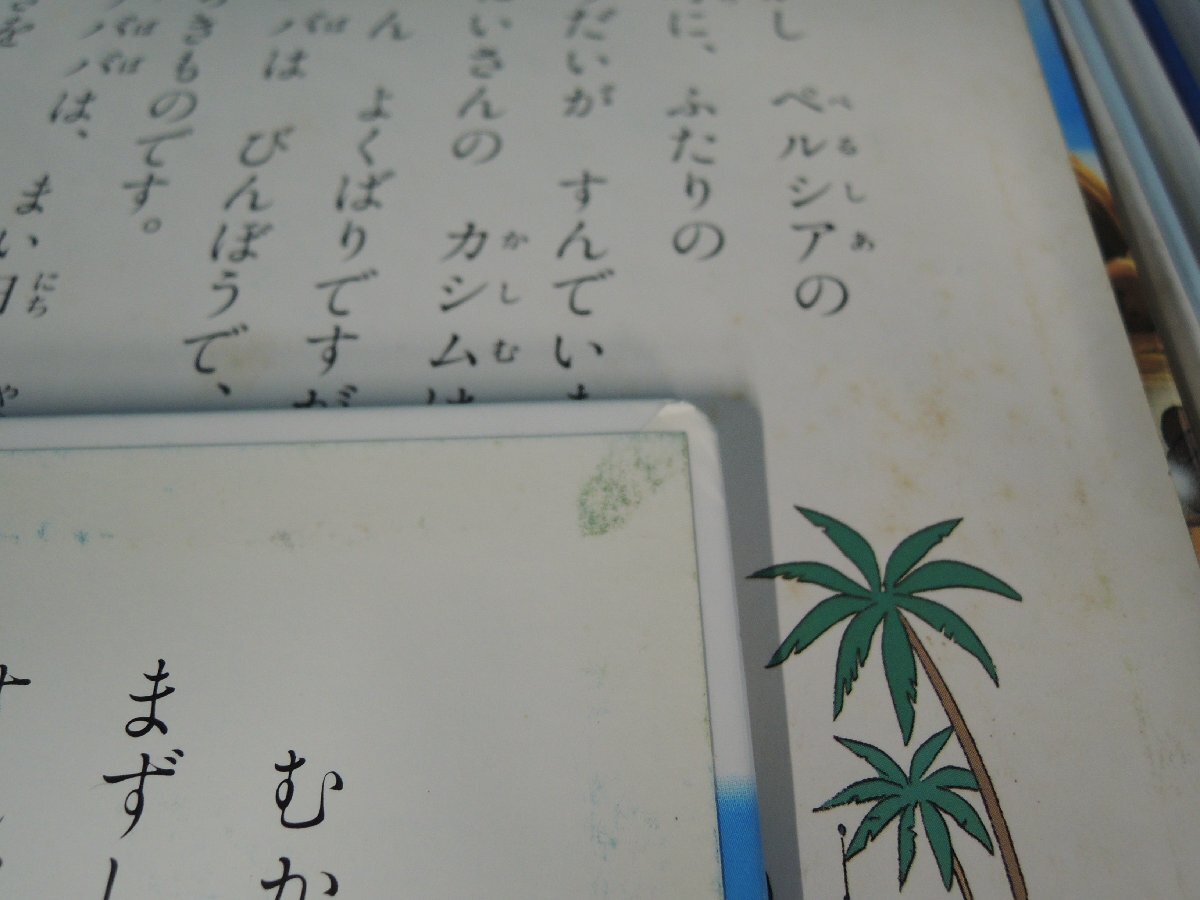 し ペルシアの
に、ふたりの
だいが すんでい
いさんの カシムは
ん よくばりですが
バは びんぼうで、
きものです。
ババは、 まい
むか
まずし